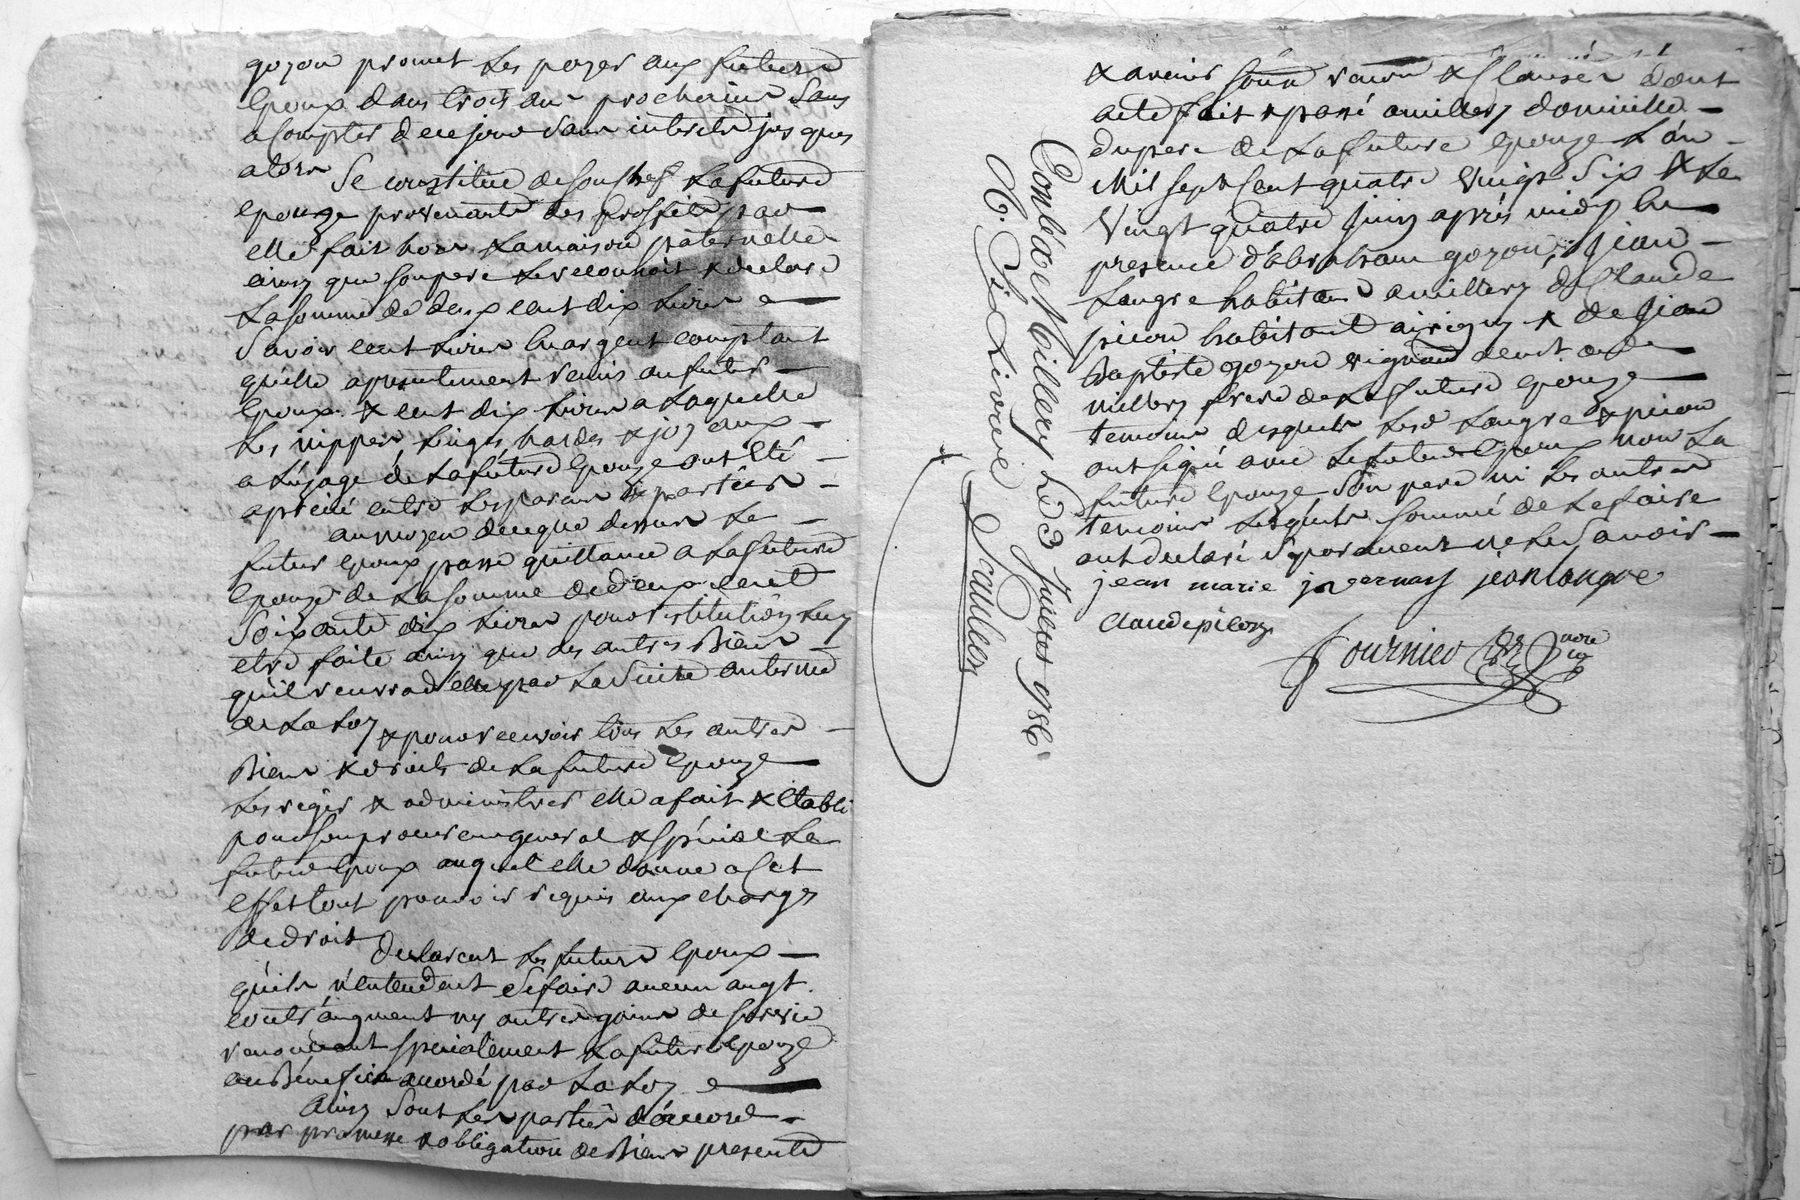 goyon promet les payer aux futurs
Epoux dans trois ans prochains sans
a Compter de ce jour sans interets jusques
alors
Se constitue de son chef la future
epouze provenante des proffits par
elle fait hors la maison paternelle
ainsy que son pere le reconnoit & declare
la somme de deux cent dix livres
Savoir cent livres En argent comptant
qu'elle a presentement remis au futur
Epoux & cent dix livres a laquelle
les nippes linges hardes & joyaux
a l'uzage de la future Epouze ont Eté
aprecié entre les parties
au moyen de ce que dessus le
futur epoux passe quittance a la future
Epouze de la somme de deux cent
Soixante dix livres pour restitution luy
etre faite ainsy que des autres Biens
qu'il recevra d'elle par la Suite au terme
de la loy
& pour recevoir tous les autres
Biens & droits de la future Epouze
les regir & administrer elle a fait & Etabli
pour son procureur general & Spécial le
futur Epoux auquel elle donne a Cet
effet tout pouvoir requis aux charges
de droit
Declarent les futurs Epoux
qu'ils n'entendent Se faire aucun augt.
contr'augment ny autres gains de survie
renoncant specialement la future epouze
au Bénéfice accordé par la loy
Ainsy Sont les parties d'accord
par promesse & obligation de Biens presents
& avenir Soum. renon. & Clauses dont
acte fait & passé a millery domicille
du pere de la future epouze l'an
Mil sept Cent quatre Vingt Six & le
Vingt quatre Juin après midy En
presence d'abraham goyon, Jean
Langre habitans a millery de Claude
picon habitant a irigny & de Jean
Baptiste goyon vigneron demt. aud.
millery frere de la future epouze
temoins desquels lesd. Langre & picon
ont signé avec le futur Epoux non la
future Epouze Son pere ni les autres
temoins lesquels sommé de le faire
ont declaré Separement ne le Savoir
jean marie jean langre
Claude picon
Fournier nore
Conlé a Millery Le 3 Juillet 1786
R. Six Livres